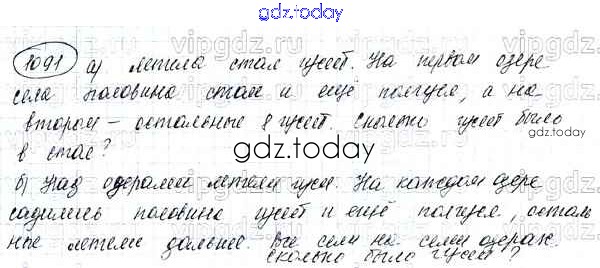 gdz.today
1091 а) летела стая гусей. На первом озере
села половина стаи и ещё полгуся, а на
втором – остальные 8 гусей. Сколько гусей было
в стае?
gdz.today
б) Над озёрами летели гуси. На каждом озере
садились половина гусей и ещё полгуся, осталь
ные летели дальше. Все сели на семи озёрах.
Сколько было гусей?
gdz.today